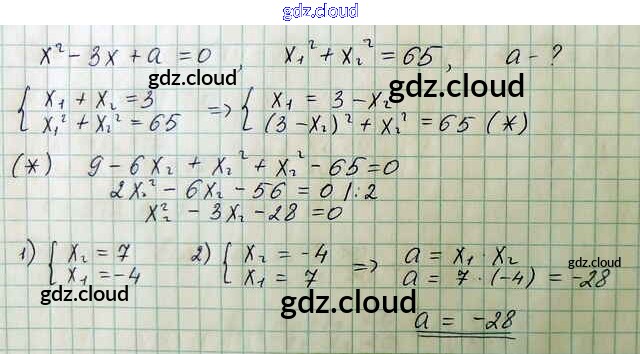 gdz.cloud
x² - 3x + a = 0, x₁² + x₂² = 65, a - ?
gdz.cloud gdz.cloud
{ x₁ + x₂ = 3 => { x₁ = 3 - x₂
x₁² + x₂² = 65 (3 - x₂)² + x₂² = 65 (*)
(*) 9 - 6x₂ + x₂² + x₂² - 65 = 0
2x₂² - 6x₂ - 56 = 0 /:2
x₂² - 3x₂ - 28 = 0
1) { x₂ = 7 2) { x₂ = -4 => a = x₁ · x₂
x₁ = -4 x₁ = 7 a = 7 · (-4) = -28
gdz.cloud
gdz.cloud gdz.cloud
a = -28